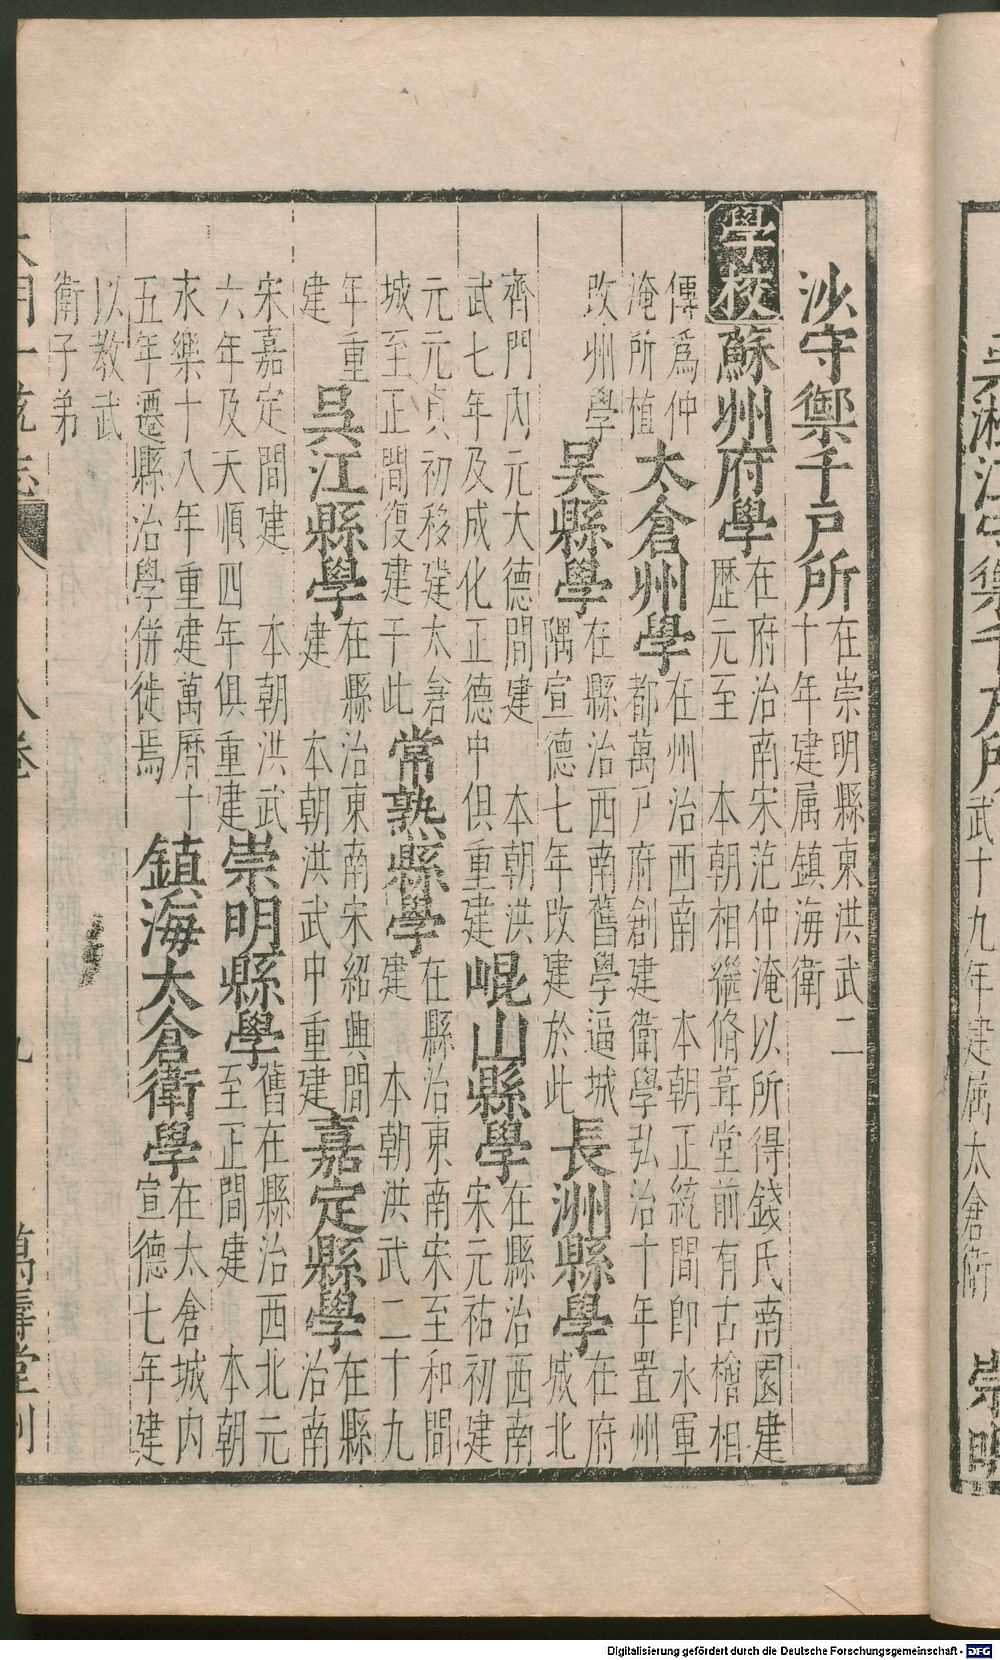 武十九年建属太倉衛
崇明
沙守禦千戸所
在崇明縣東洪武二
十年建属鎮海衛
學校
蘇州府學
在府治南宋范仲淹以所得錢氏南園建
歷元至　本朝相繼脩葺堂前有古檜相
傳爲仲
淹所植
太倉州學
在州治西南　本朝正統間即水軍
都萬戸府創建衛學弘治十年置州
改州學
吴縣學
在縣治西南舊學逼城
隅宣德七年改建於此
長洲縣學
在府
城北
齊門内元大德間建　本朝洪
武七年及成化正德中俱重建
崐山縣學
在縣治西南
宋元祐初建
元元貞初移建太倉
城至正間復建于此
常熟縣學
在縣治東南宋至和間
建　本朝洪武二十九
年重
建
吳江縣學
在縣治東南宋紹興間
建　本朝洪武中重建
嘉定縣學
在縣
治南
宋嘉定間建　本朝洪武
六年及天順四年俱重建
崇明縣學
舊在縣治西北元
至正間建　本朝
永樂十八年重建萬曆十
五年遷縣治學併徙焉
鎮海太倉衛學
在太倉城内
宣德七年建
以教武
衛子弟
萬壽堂刊
Digitalisierung gefördert durch die Deutsche Forschungsgemeinschaft - DFG